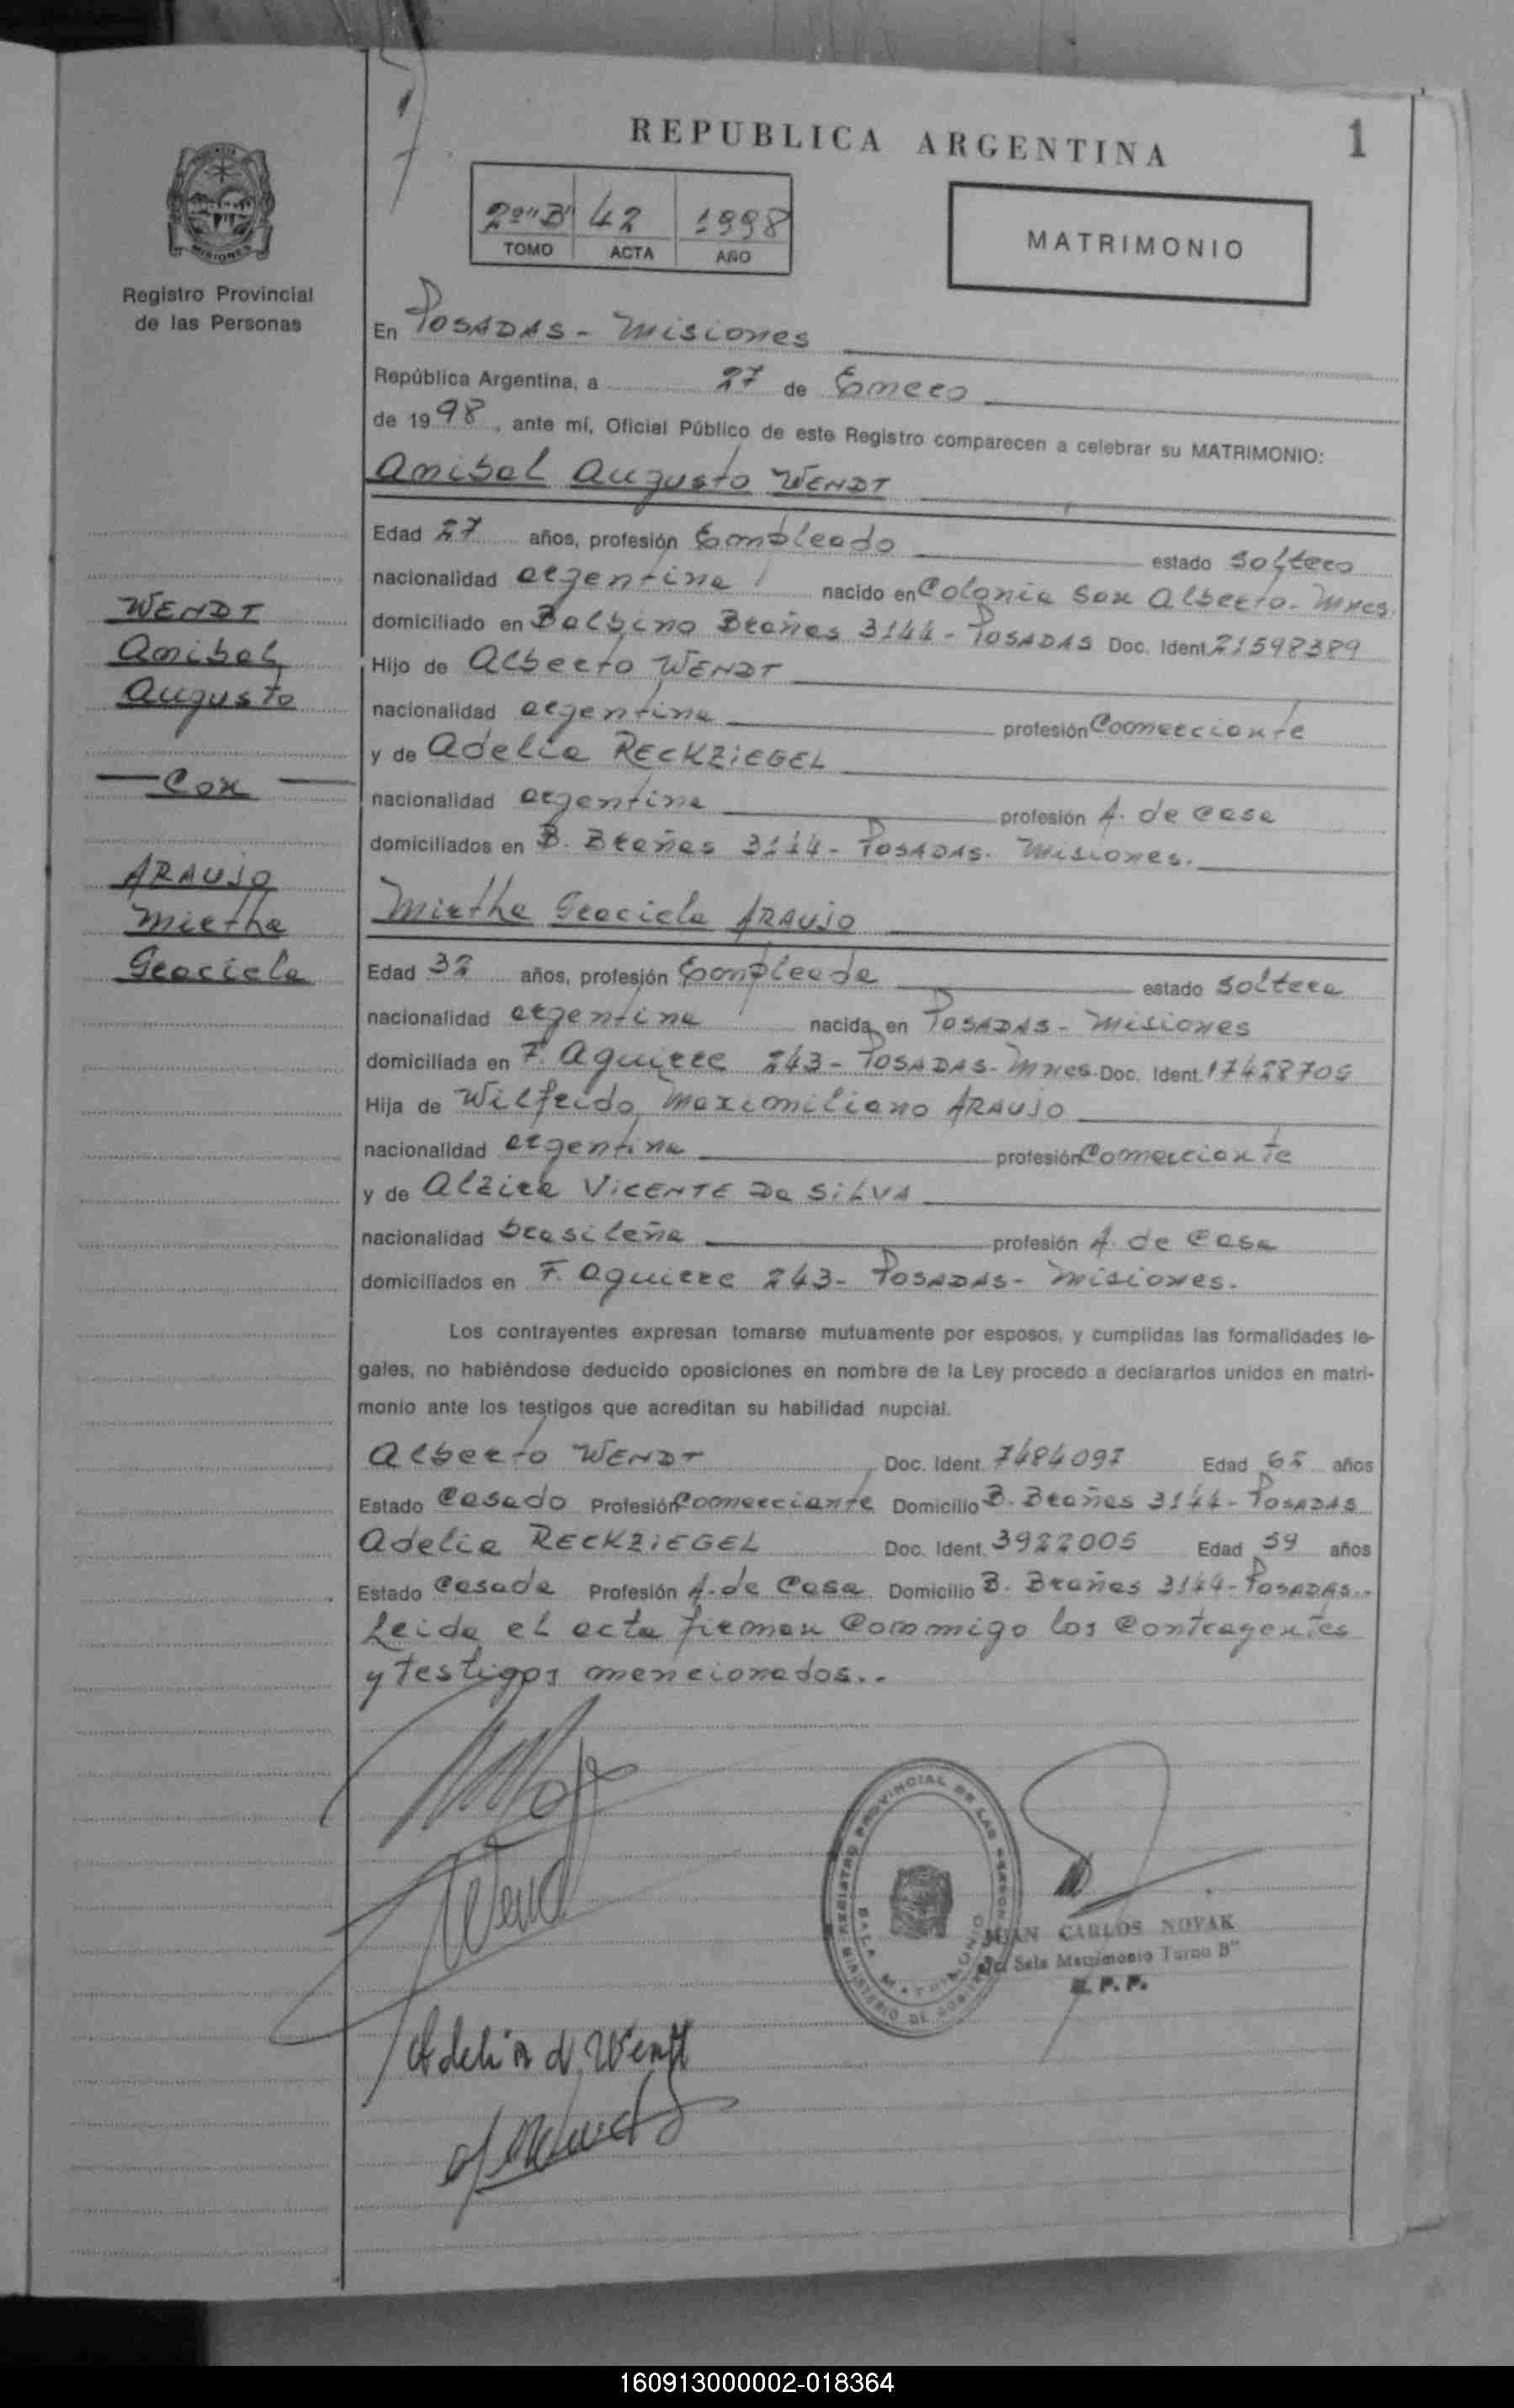 REPUBLICA ARGENTINA
1
MISIONES
Registro Provincial
de las Personas
2º"B" 42 1998
TOMO ACTA AÑO
MATRIMONIO
En POSADAS - Misiones
República Argentina, a 27 de Enero
de 1998, ante mí, Oficial Público de este Registro comparecen a celebrar su MATRIMONIO:
Anibal Augusto WENDT
Edad 27 años, profesión Empleado estado Soltero
nacionalidad argentina nacido en Colonia San Alberto - Mnes.
domiciliado en Balbino Brañas 3144 - POSADAS Doc. Ident. 21598389
Hijo de Alberto WENDT
nacionalidad argentina profesión Comerciante
y de Adelia RECKZiEGEL
nacionalidad argentina profesión A. de casa
domiciliados en B. Brañas 3144 - POSADAS - Misiones.
Mirtha Graciela ARAUJO
Edad 32 años, profesión Empleada estado Soltera
nacionalidad argentina nacida en POSADAS - Misiones
domiciliada en F. Aguirre 243 - POSADAS - Mnes. Doc. Ident.
Hija de Wilfrido Maximiliano ARAUJO
nacionalidad argentina profesión Comerciante
y de Alzira ViCENTE Da SiLVA
nacionalidad brasileña profesión A. de Casa
domiciliados en F. Aguirre 243 - POSADAS - Misiones.
Los contrayentes expresan tomarse mutuamente por esposos, y cumplidas las formalidades le-
gales, no habiéndose deducido oposiciones en nombre de la Ley procedo a declararlos unidos en matri-
monio ante los testigos que acreditan su habilidad nupcial.
Alberto WENDT Doc. Ident. Edad 65 años
Estado Casado Profesión Comerciante Domicilio B. Brañas 3144 - POSADAS
Adelia RECKZiEGEL Doc. Ident. 3922005 Edad 59 años
Estado Casada Profesión A. de Casa Domicilio B. Brañas 3144 - POSADAS..
Leida el acta firman conmigo los contrayentes
y testigos mencionados..
WENDT
Anibal
Augusto
Con
ARAUJO
Mirtha
Graciela
REGISTRO PROVINCIAL DE LAS PERSONAS
SALA MATRIMONIO
MINISTERIO DE GOBIERNO
JUAN CARLOS NOVAK
Sala Matrimonio Turno B"
R. P. P.
Adelia d Wendt
160913000002-018364